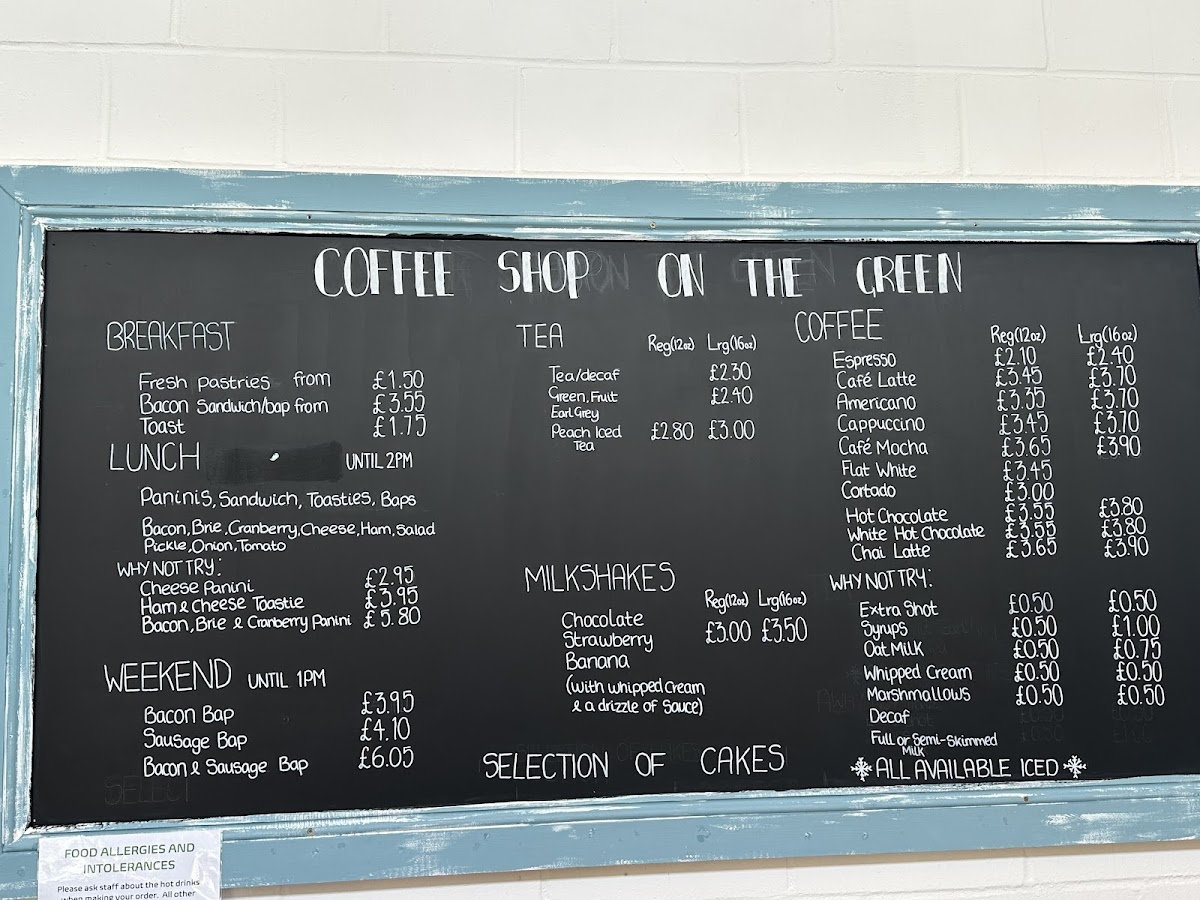 COFFEE SHOP ON THE GREEN
BREAKFAST
Fresh pastries from £1.50
Bacon Sandwich/bap from £3.55
Toast £1.75
LUNCH UNTIL 2PM
Paninis, Sandwich, Toasties, Baps
Bacon, Brie, Cranberry, Cheese, Ham, Salad
Pickle, Onion, Tomato
WHY NOT TRY:
Cheese Panini £2.95
Ham & Cheese Toastie £3.95
Bacon, Brie & Cranberry Panini £5.80
WEEKEND UNTIL 1PM
Bacon Bap £3.95
Sausage Bap £4.10
Bacon & Sausage Bap £6.05
TEA Reg(12oz) Lrg(16oz)
Tea/decaf £2.30
Green, Fruit £2.40
Earl Grey
Peach Iced £2.80 £3.00
Tea
MILKSHAKES
Reg(12oz) Lrg(16oz)
Chocolate
Strawberry £3.00 £3.50
Banana
(with whipped cream
& a drizzle of sauce)
SELECTION OF CAKES
COFFEE Reg(12oz) Lrg(16oz)
Espresso £2.10 £2.40
Café Latte £3.45 £3.70
Americano £3.35 £3.70
Cappuccino £3.45 £3.70
Café Mocha £3.65 £3.90
Flat White £3.45
Cortado £3.00
Hot Chocolate £3.55 £3.80
White Hot Chocolate £3.55 £3.80
Chai Latte £3.65 £3.90
WHY NOT TRY:
Extra Shot £0.50 £0.50
Syrups £0.50 £1.00
Oat Milk £0.50 £0.75
Whipped Cream £0.50 £0.50
Marshmallows £0.50 £0.50
Decaf
Full or Semi-Skimmed
Milk
ALL AVAILABLE ICED
FOOD ALLERGIES AND
INTOLERANCES
Please ask staff about the hot drinks
when making your order. All other